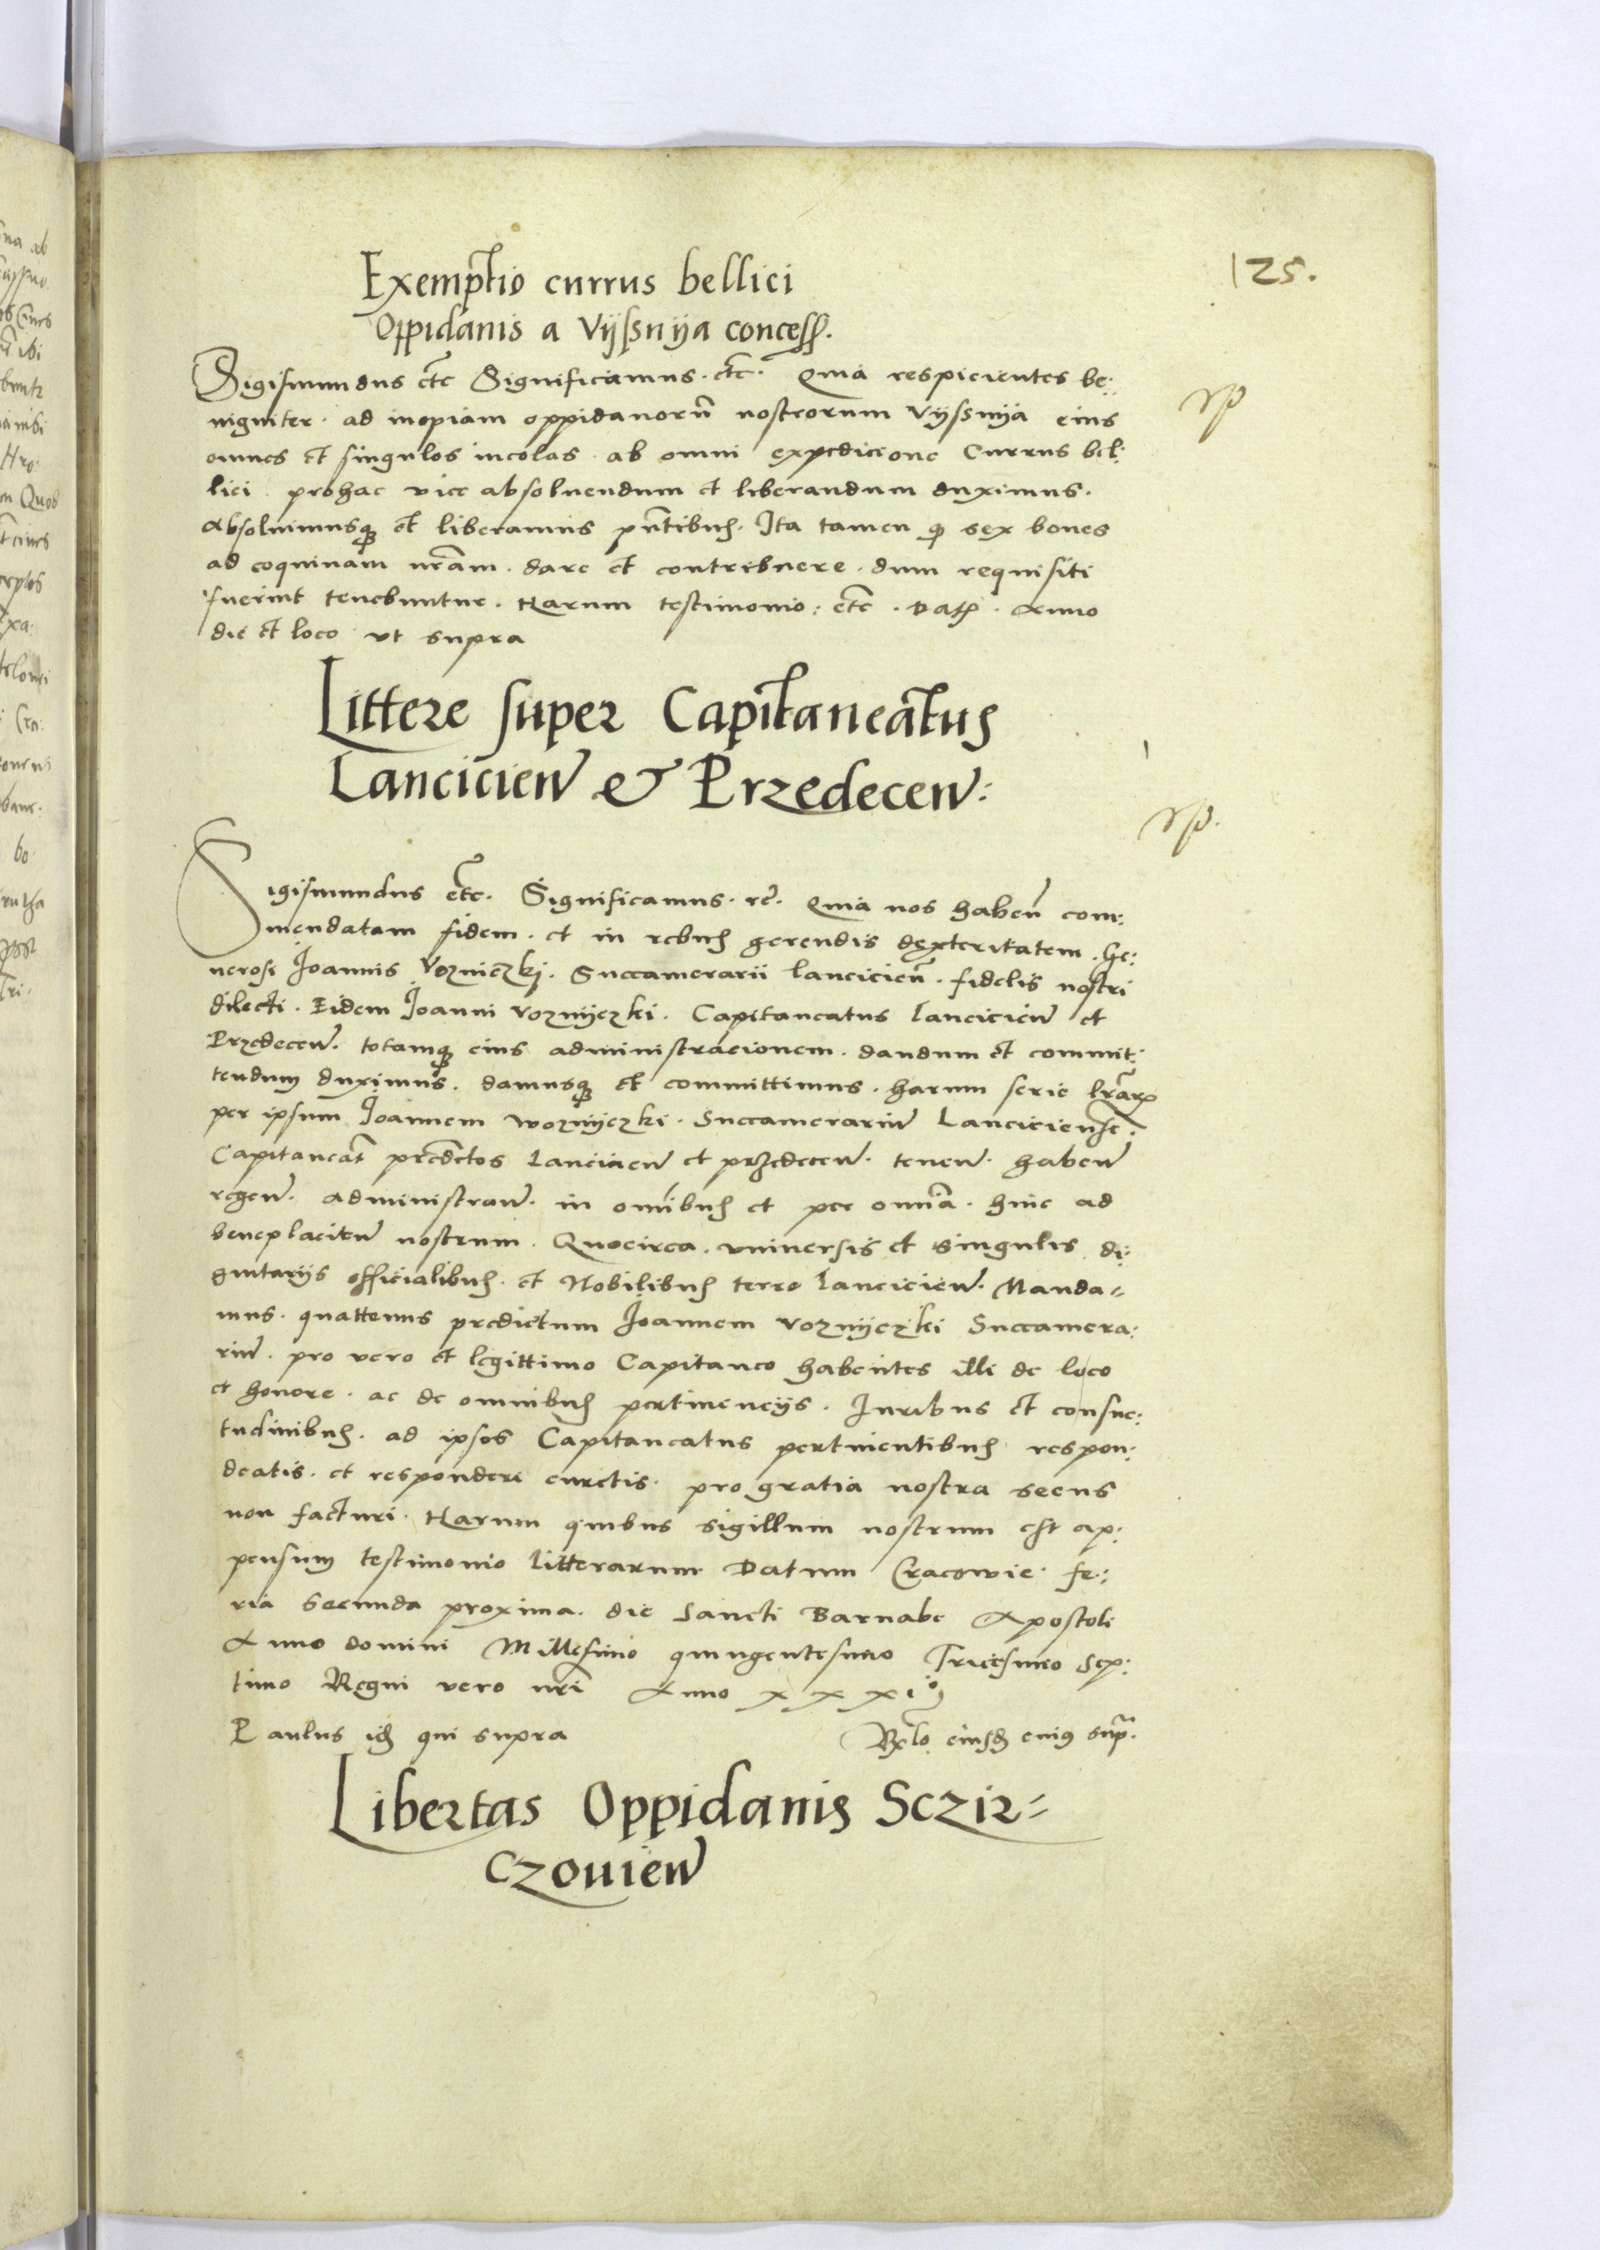 125.
Exemptio currus bellici
Oppidanis a Vyssnya concess.
Sigismundus etc Significamus. etc. Quia respicientes be:
nigniter. ad inopiam oppidanorũ nostrorum Vyssnya eius
omnes et singulos incolas. ab omni expedicione Currus bel:
lici prohac vice absoluendum et liberandum duximus.
Absoluimusq et liberamus pñtibus. Ita tamen q sex boues
ad coquinam nrãm. dare et contribuere. dum requisiti
fuerint tenebuntur. Harum testimonio: etc. Dat. Anno
die et loco vt supra
Littere super Capitaneatus
Lancicien & Przedecen:
Sigismundus etc. Significamus. rc. Quia nos habeñ com:
mendatam fidem. et in rebus gerendis dexteritatem. Ge:
nerosi Joannis Vozniczki. Succamerarii lancicieñ. fidelis nostri
dilecti. Eidem Joanni Voznyczki. Capitaneatus lancicien et
Przedecen. totamq eius administracionem. dandum et commit:
tendum duximus. damusq et committimus. harum serie lrãrum
per ipsum Joannem woznyczki. Succamerariũ Lanciciense.
Capitaneat predictos lancicien et przedecen. tenen. haben
regen. administran. in omnibus et per omnia. huic ad
beneplacitũ nostrum. Quocirca. vniuersis et singulis. di:
gnitariis officialibus. et Nobilibus terre lancicien. Manda=
mus. quattenus predictum Joannem voznyczki Succamera:
rium. pro vero et legittimo Capitaneo habentes illi de loco
et honore. ac de omnibus pertinencijs. Juribus et consue:
tudinibus. ad ipsos Capitaneatus pertinentibus respon:
deatis. et responderi curetis. pro gratia nostra secus
non facturi. Harum quibus sigillum nostrum est ap:
pensum testimonio litterarum Datum Cracowie. fe:
ria secunda proxima. die Sancti Barnabe Apostoli
Anno domini Millesimo quingentesimo Tricesimo Sep:
timo Regni vero nri Anno xxxi°
Paulus id qui supra
eiusd cuius supra.
Libertas Oppidanis Sczir=
czouien